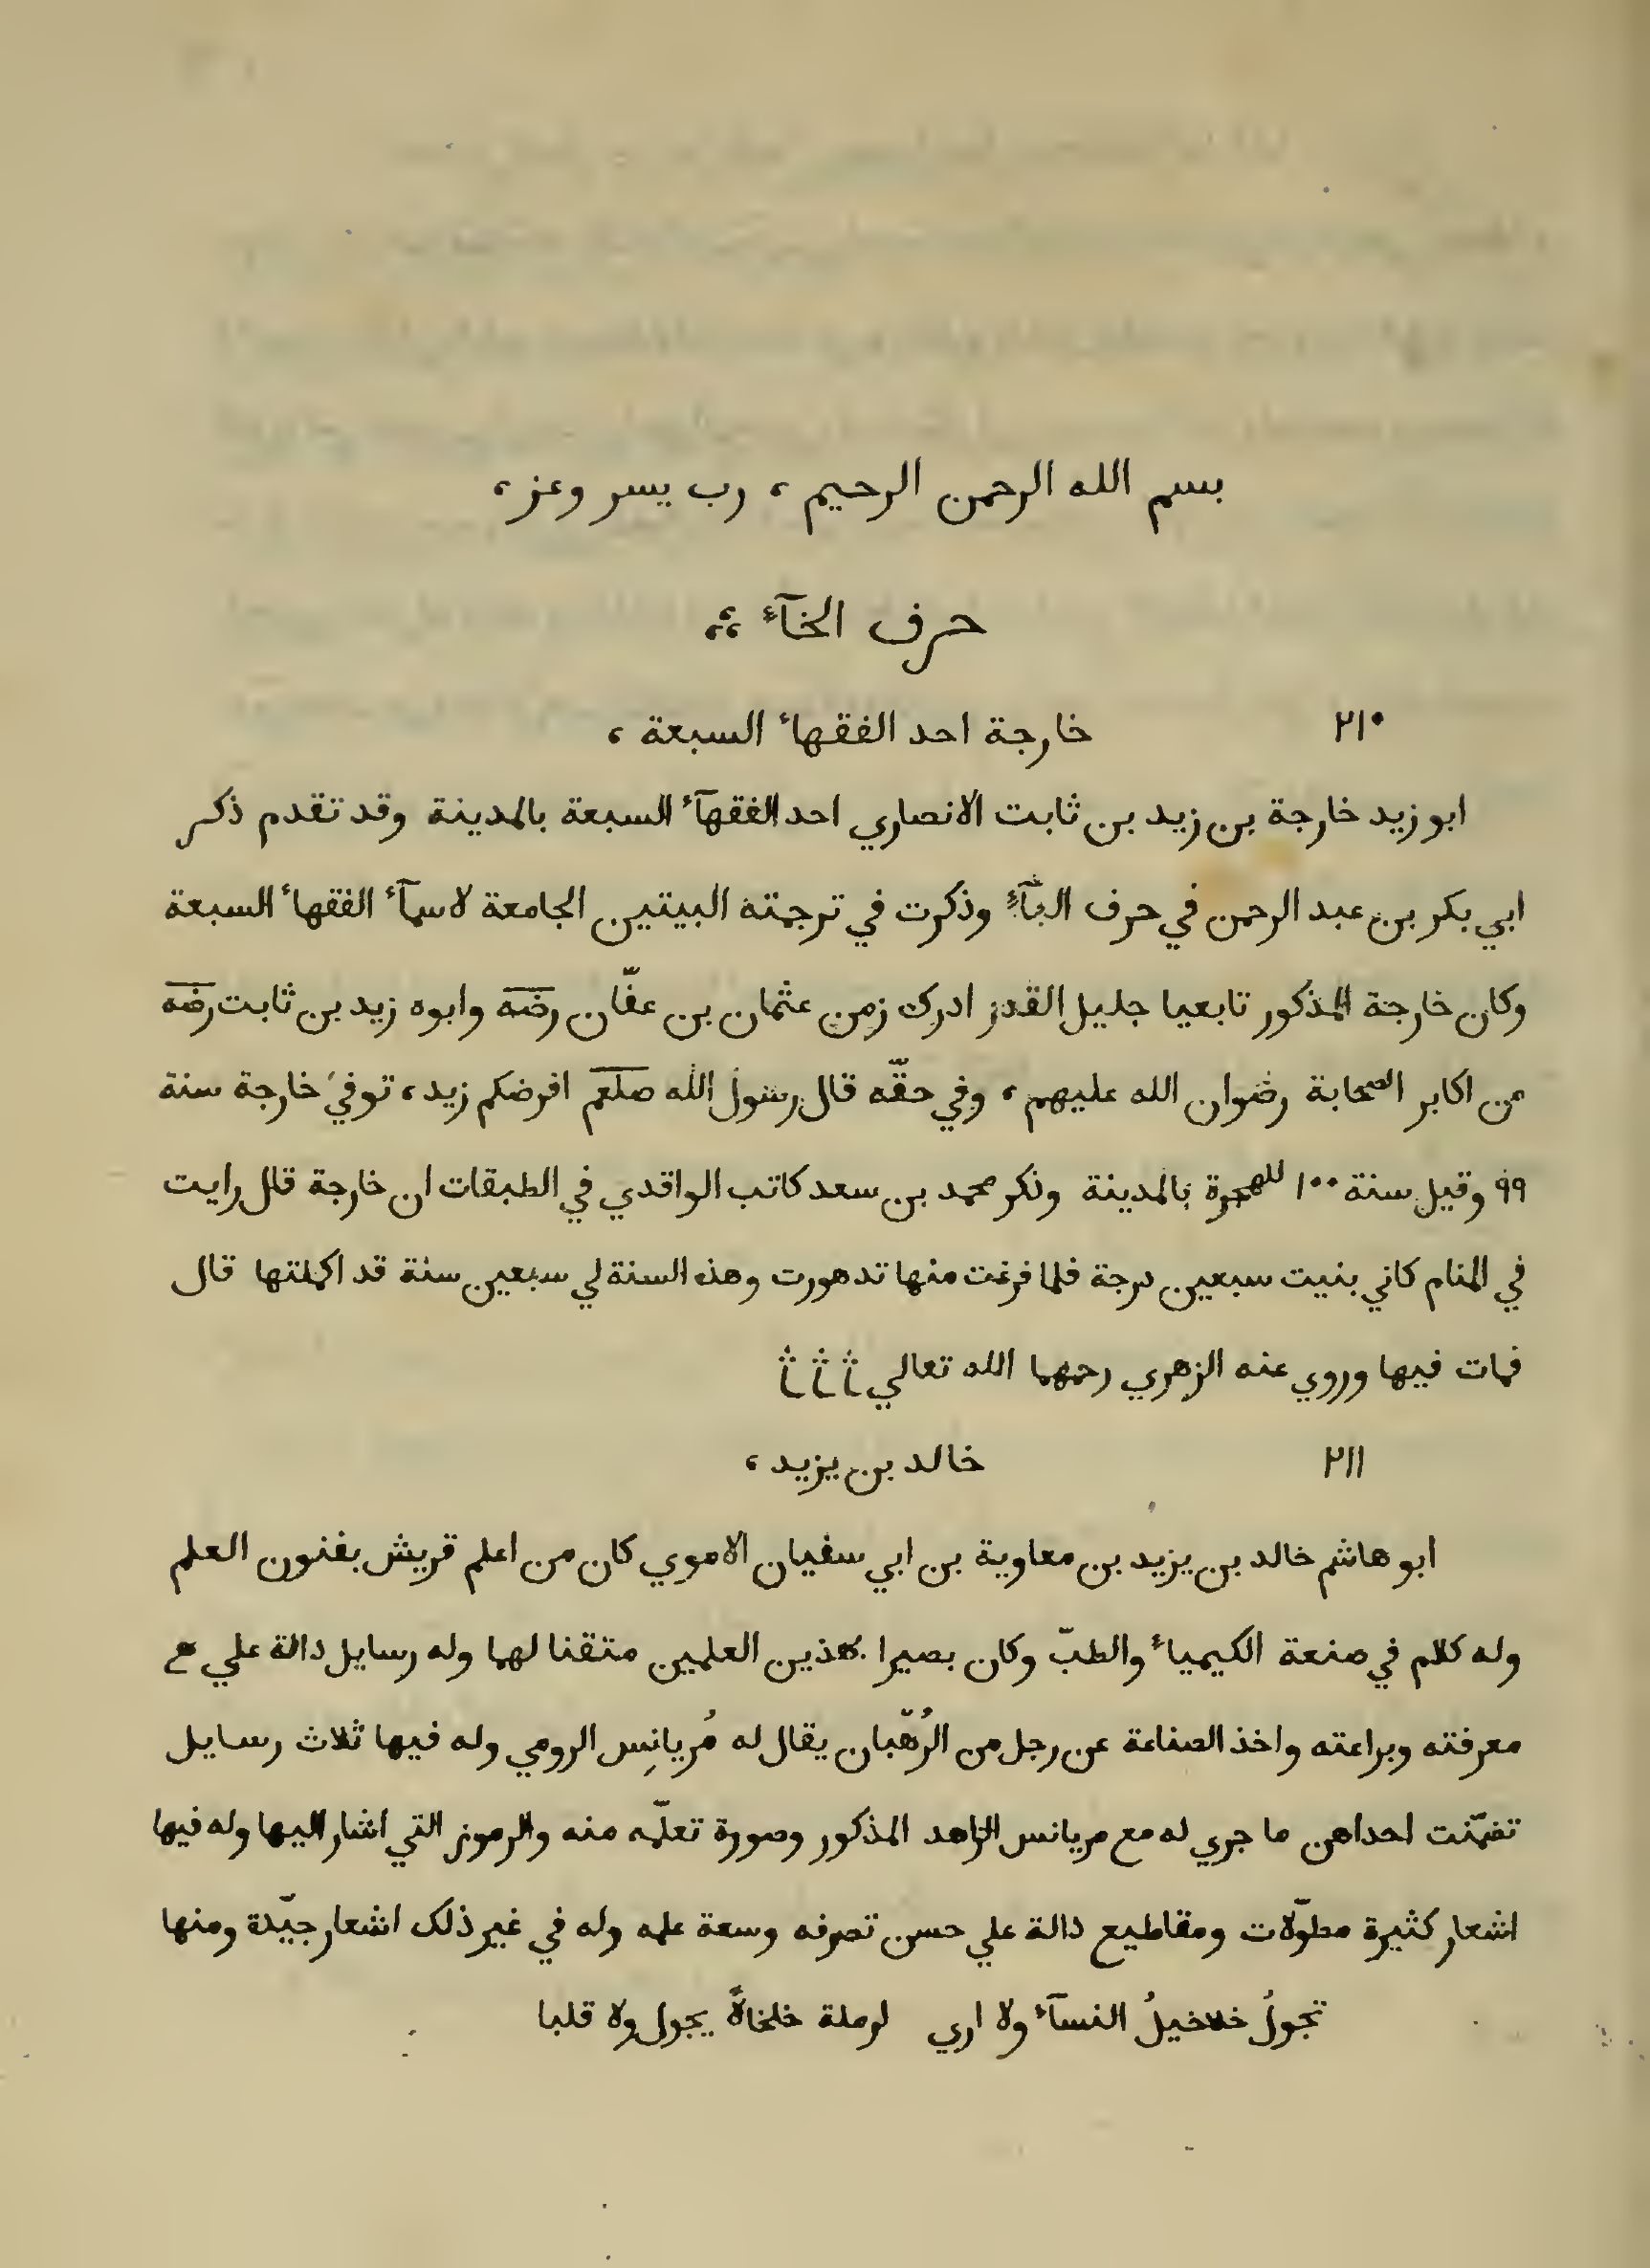 بسم الله الرحمن الرحيم ، رب يسر وعز ،
حرف الخآء ؛
٢١٠ خارجة احد الفقهاء السبعة ،
ابو زيد خارجة بن زيد بن ثابت الانصاري احد الفقهآء السبعة بالمدينة وقد تقدم ذكر
ابي بكر بن عبد الرحمن في حرف البآء وذكرت في ترجمته البيتين الجامعة لاسمآء الفقهاء السبعة
وكان خارجة المذكور تابعيا جليل القدر ادرك زمن عثمان بن عفّان رضه وابوه زيد بن ثابت رضه
من اكابر الصحابة رضوان الله عليهم ، وفي حقّه قال رسول الله صلعم افرضكم زيد ، توفي خارجة سنة
٩٩ وقيل سنة ١٠٠ للهجرة بالمدينة وذكر محمد بن سعد كاتب الواقدي في الطبقات ان خارجة قال رايت
في المنام كاني بنيت سبعين درجة فلما فرغت منها تدهورت وهذه السنة لي سبعين سنة قد اكملتها قال
فمات فيها وروي عنه الزهري رحمهما الله تعالي
٢١١ خالد بن يزيد ،
ابو هاشم خالد بن يزيد بن معاوية بن ابي سفيان الاموي كان من اعلم قريش بفنون العلم
وله كلام في صنعة الكيمياء والطبّ وكان بصيرا بهذين العلمين متقنا لهما وله رسايل دالة علي
معرفته وبراعته واخذ الصناعة عن رجل من الرُهّبان يقال له مُريانِس الرومي وله فيها ثلاث رسايل
تضمّنت احداهن ما جري له مع مريانس الراهد المذكور وصورة تعلّمه منه والرموز التي اشار اليها وله فيها
اشعار كثيرة مطوّلات ومقاطيع دالة علي حسن تصرفه وسعة علمه وله في غير ذلك اشعار جيّدة ومنها
تجولُ خلاخيلُ النسآء ولا اري لرملة خلخالاً يجول ولا قلبا